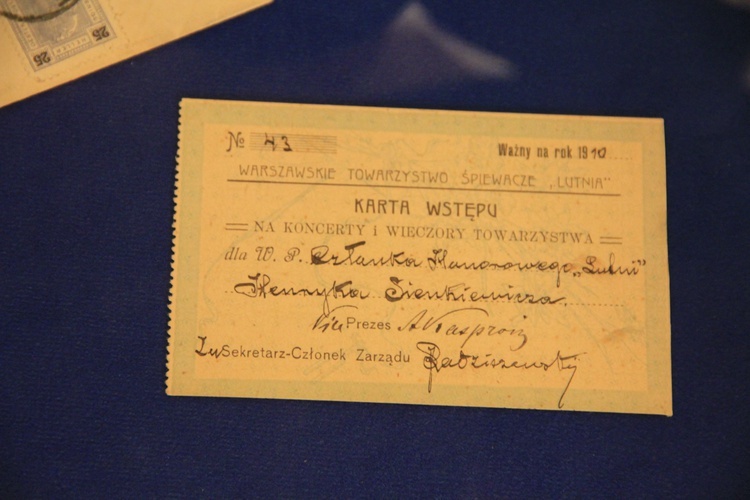 25 25
№ 43
Ważny na rok 1910
WARSZAWSKIE TOWARZYSTWO ŚPIEWACZE „LUTNIA"
KARTA WSTĘPU
NA KONCERTY I WIECZORY TOWARZYSTWA
dla W. P. Członka Honorowego „Lutni"
Henryka Sienkiewicza.
Vice Prezes
Za Sekretarz-Członek Zarządu Radziszewski